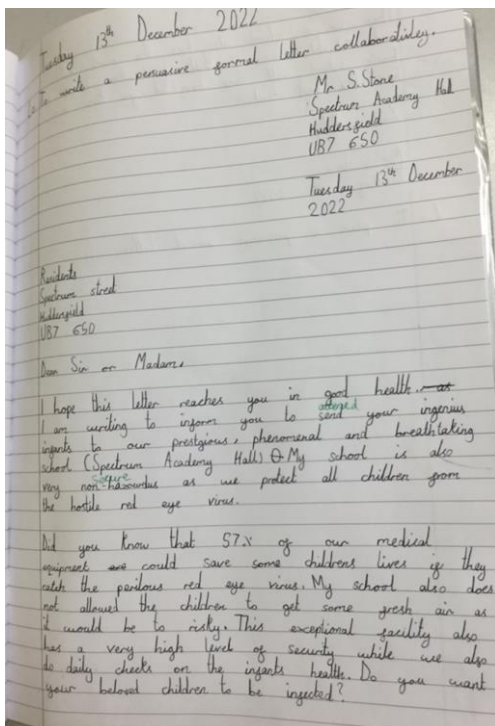 Tuesday 13th December 2022
Lo To write a persuasive formal letter collaborativley.
Mr S.Stone
Spectrum Academy Hall
Huddersgield
UB7 6SO
Tuesday 13th December
2022
Residents
Spectrum street
Huddersgield
UB7 6SO
Dear Sir or Madam,
I hope this letter reaches you in good health. as
I am writing to inform you to send attened your ingenius
infants to our prestgious, phenomenal and breathtaking
school (Spectrum Academy Hall). My school is also
very secure non-hazourdus as we protect all children from
the hostile red eye virus.
Did you know that 57% of our medical
equipment are could save some childrens lives if they
catch the perilous red eye virus. My school also does
not allowed the children to get some fresh air as
it would be to risky. This exceptional facility also
has a very high level of security while we also
do daily checks on the infants health. Do you want
your beloved children to be infected?